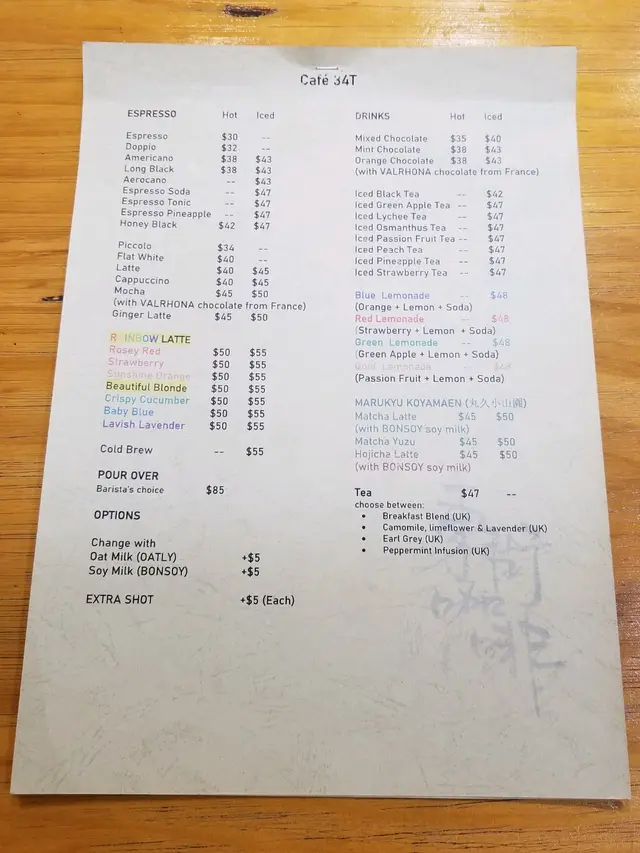 Café 34T
ESPRESSO Hot Iced
Espresso $30 --
Doppio $32 --
Americano $38 $43
Long Black $38 $43
Aerocano -- $43
Espresso Soda -- $47
Espresso Tonic -- $47
Espresso Pineapple -- $47
Honey Black $42 $47
Piccolo $34 --
Flat White $40 --
Latte $40 $45
Cappuccino $40 $45
Mocha $45 $50
(with VALRHONA chocolate from France)
Ginger Latte $45 $50
RAINBOW LATTE
Rosey Red $50 $55
Strawberry $50 $55
Sunshine Orange $50 $55
Beautiful Blonde $50 $55
Crispy Cucumber $50 $55
Baby Blue $50 $55
Lavish Lavender $50 $55
Cold Brew -- $55
POUR OVER
Barista's choice $85
OPTIONS
Change with
Oat Milk (OATLY) +$5
Soy Milk (BONSOY) +$5
EXTRA SHOT +$5 (Each)
DRINKS Hot Iced
Mixed Chocolate $35 $40
Mint Chocolate $38 $43
Orange Chocolate $38 $43
(with VALRHONA chocolate from France)
Iced Black Tea -- $42
Iced Green Apple Tea -- $47
Iced Lychee Tea -- $47
Iced Osmanthus Tea -- $47
Iced Passion Fruit Tea -- $47
Iced Peach Tea -- $47
Iced Pineapple Tea -- $47
Iced Strawberry Tea -- $47
Blue Lemonade -- $48
(Orange + Lemon + Soda)
Red Lemonade -- $48
(Strawberry + Lemon + Soda)
Green Lemonade -- $48
(Green Apple + Lemon + Soda)
Lemonade -- $48
(Passion Fruit + Lemon + Soda)
MARUKYU KOYAMAEN (丸久小山園)
Matcha Latte $45 $50
(with BONSOY soy milk)
Matcha Yuzu $45 $50
Hojicha Latte $45 $50
(with BONSOY soy milk)
Tea $47 --
choose between:
• Breakfast Blend (UK)
• Camomile, limeflower & Lavender (UK)
• Earl Grey (UK)
• Peppermint Infusion (UK)